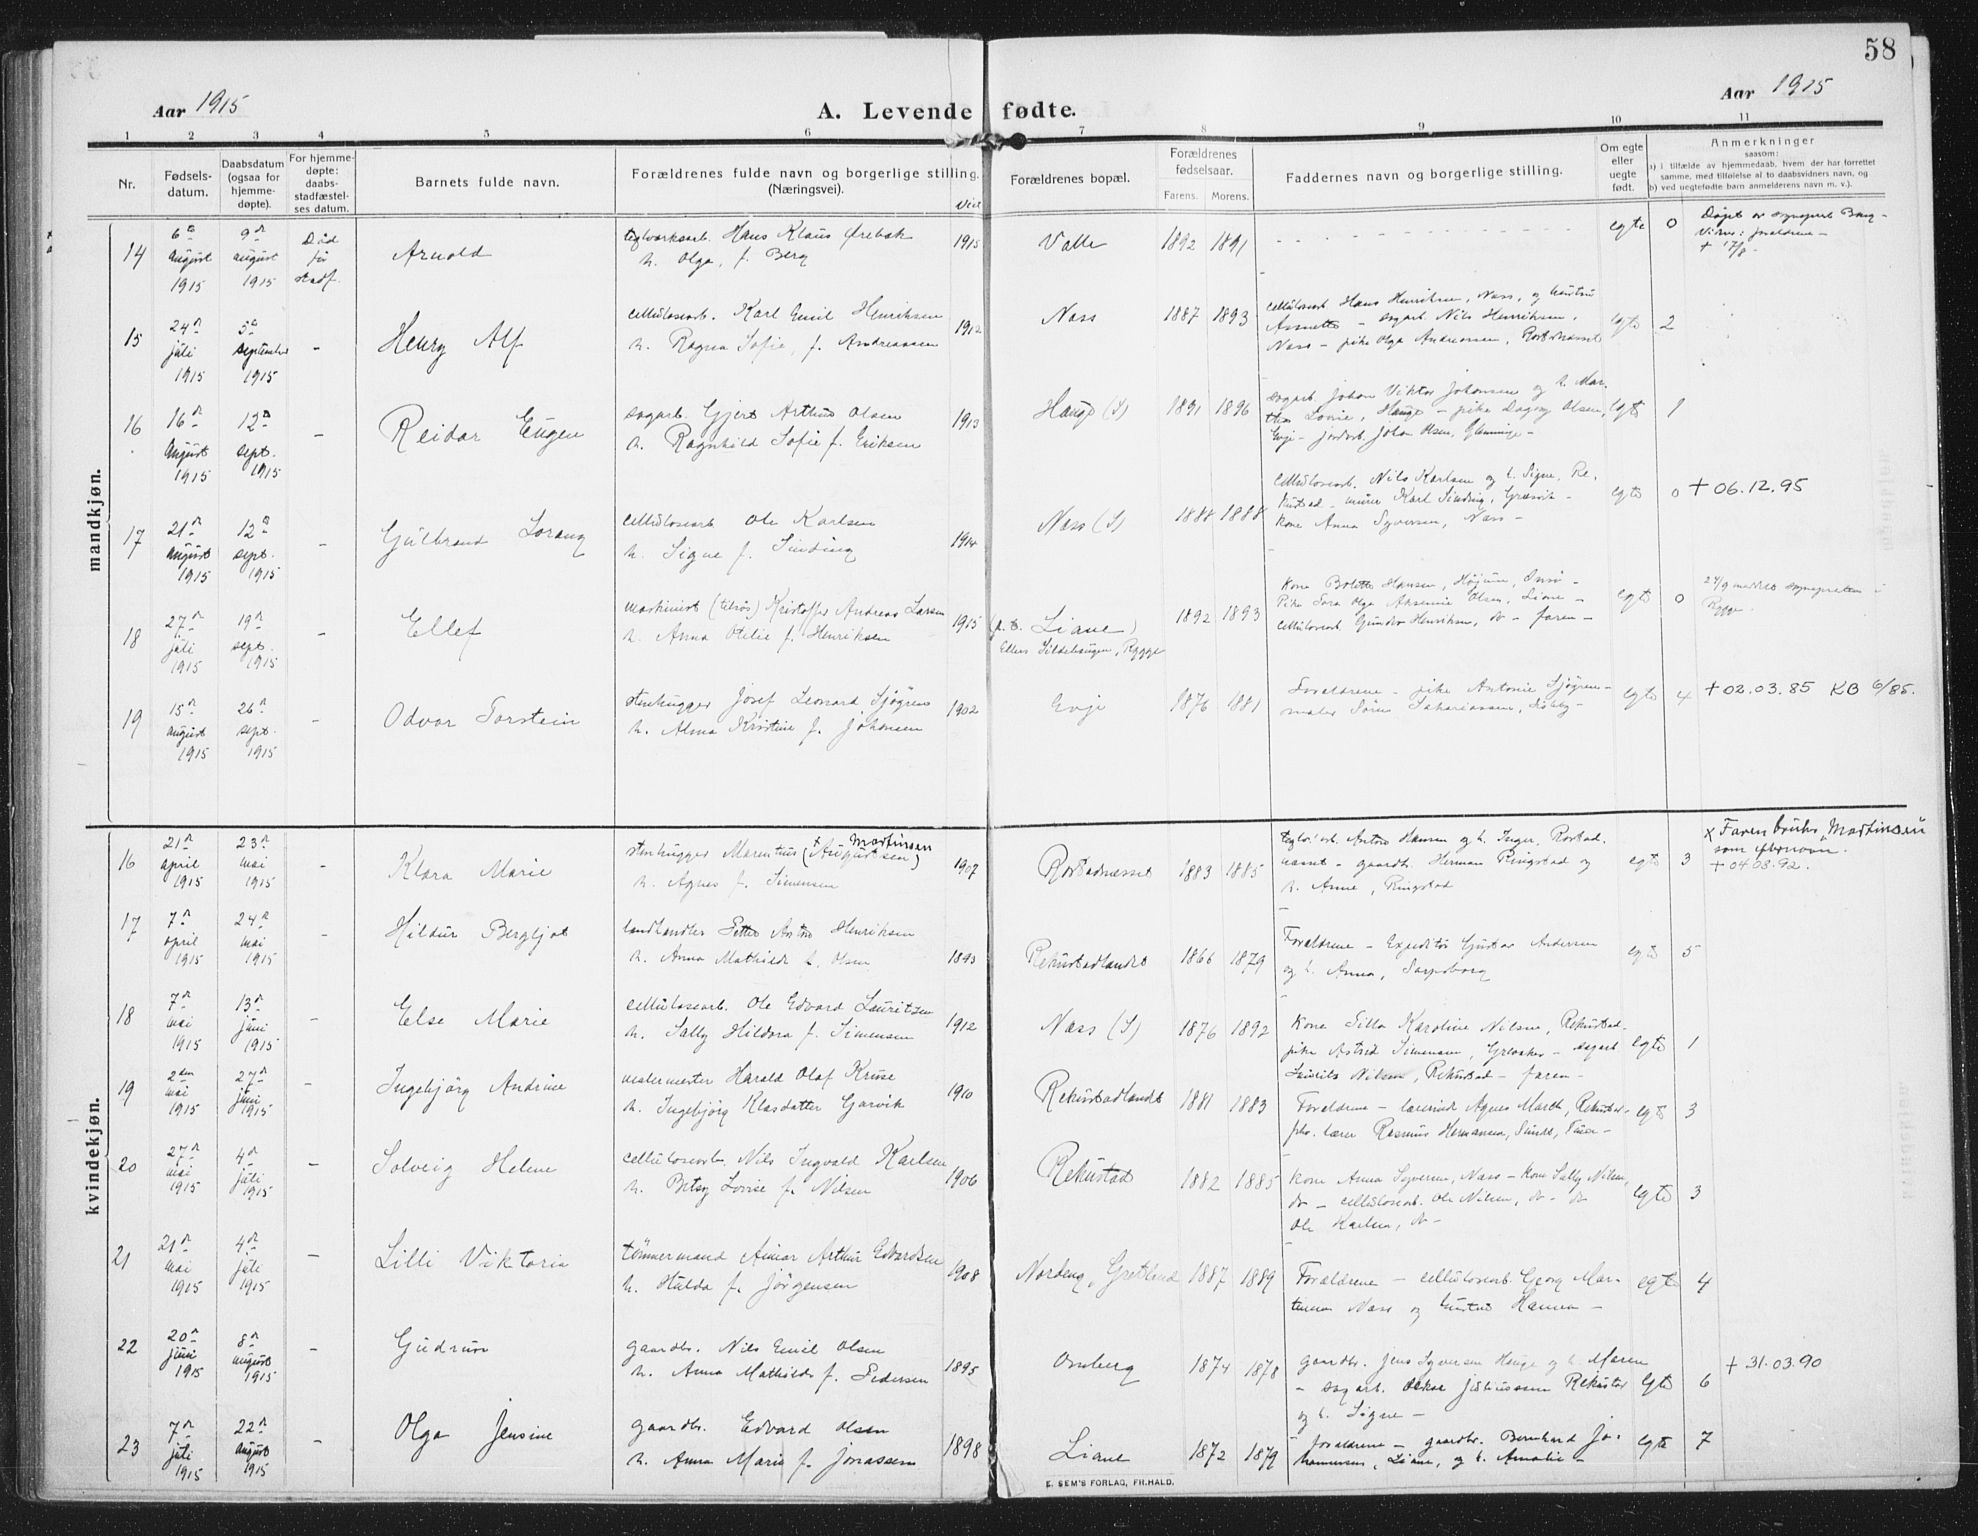 58
Aar 1915
A. Levende fødte.
Aar 1915
1 2 3 4 5 6 7 8 9 10 11
Nr.
Fødsels-
datum.
Daabsdatum
(ogsaa for
hjemme-
døpte).
For hjemme-
døpte:
daabs-
stadfæstel-
ses datum.
Barnets fulde navn.
Forældrenes fulde navn og borgerlige stilling.
(Næringsvei).
Viet
Forældrenes bopæl.
Forældrenes
fødselsaar.
Farens. Morens.
Faddernes navn og borgerlige stilling.
Om egte
eller
uegte
født.
Anmerkninger
saasom:
a) i tilfælde av hjemmedaab, hvem der har forrettet
samme, med tilføielse af to daabsvidners navn, og
b) ved uegtefødte barn anmelderens navn m. v.).
mandkjøn.
14
6te august 1915
9de august 1915
Død før stadf.
Arnold
teglverksarb. Hans Klaus Ørebak
h. Olga, f. Berg
1915
Valle
1892 1891
egte 0
+ 17/8 -
15
24de juli 1915
5te september 1915
-
Henry Alf
cellulosearb. Karl Emil Henriksen
h. Ragna Sofie, f. Andreassen
1912
Nass
1887 1893
cellulosearb. Hans Henriksen, Nass, og hustru
Annette - sagarb. Nils Henriksen,
Nass - pike Olga Andreassen, Rostadnæsset
egte 2
16
16de august 1915
12te sept. 1915
-
Reidar Eugen
sagarb. Gjert Arthur Olsen
h. Ragnhild Sofie f. Eriksen
1913
Hauge (S)
1891 1896
sagarb. Johan Viktor Johansen og h. Mar-
tha Lovise, Hauge - pike Dagny Olsen,
Evje - jordarb. Johan Olsen, Glemminge -
egte 1
17
21de august 1915
12te sept. 1915
-
Gulbrand Lorang
cellulosearb. Ole Karlsen
h. Signe f. Sinding
1914
Nass (S)
1888 1888
cellulosearb. Nils Karlsen og h. Signe, Re-
kustad - murer Karl Sinding, Græsvik -
kone Anna Syversen, Nass -
egte 0
+ 06.12.95
18
27de juli 1915
19de sept. 1915
-
Ellef
maskinist (tilsøs) Kristoffer Andreas Larsen
h. Anna Otilie f. Henriksen
1915
(p. t. Liane)
Ellers Sildebaugen, Rygge
1892 1893
kone Bolette Hansen, Højum, Onsø -
Pike Sara Olga Aksenie Olsen, Liane -
cellulosearb. Gunder Henriksen, do - faren -
egte 0
24/9 meddelt sognepresten i
Rygge.
19
15de august 1915
26de sept. 1915
-
Odvar Torstein
stenhugger Josef Leonard Sjøgren
h. Alma Kristine f. Johansen
1902
Evje
1876 1881
Forældrene - pike Antonie Sjøgren -
maler Søren Sakariassen, -
egte 4
+ 02.03.85 KB 6/85.
kvindekjøn.
16
21de april 1915
23de mai 1915
-
Klara Marie
Martinsen
stenhugger Marenthius (x Augustsen)
h. Agnes f. Simensen
1907
Rostadnæsset
1883 1885
teglv.arb. Anton Hansen og h. Inger, Rostad-
næsset - gaardbr. Herman Ringstad og
h. Anne, Ringstad
egte 3
x Faren bruks Martinsen
som efternavn.
+ 04.03.92.
17
7de april 1915
24de mai 1915
-
Hildur Bergljot
landhandler Petter Anton Henriksen
h. Anna Mathilde f. Olsen
1893
Rekustadlandet
1866 1879
Forældrene - Expeditør Gustav Andersen
og h. Anna, Sarpsborg
egte 5
18
7de mai 1915
13de juni 1915
-
Else Marie
cellulosearb. Ole Edvard Lauritzen
h. Sally Hildora f. Simensen
1912
Nass (S)
1876 1892
kone Silla Karoline Nilsen, Rekustad -
pike Astrid Simensen, Greaaker - sagarb
Laurits Nilsen, Rekustad - faren -
egte 1
19
2den mai 1915
27de juni 1915
-
Ingebjörg Andrine
mestermester Harald Olaf Kruse
h. Ingebjörg Klasdatter Garvik
1910
Rekustadlandet
1881 1883
Forældrene - lærerinde Agnes March, Rekustad -
fhv. lærer Rasmus Hermansen, -
egte 3
20
27de mai 1915
4de juli 1915
-
Solveig Helene
cellulosearb. Nils Ingvald Karlsen
h. Betsy Lovise f. Nilsen
1906
Rekustad
1882 1885
kone Anna Syversen, Nass - kone Sally Nilsen,
do - cellulosearb. Ole Nilsen, do - do
Ole Karlsen, do -
egte 3
21
21de mai 1915
4de juli 1915
-
Lilli Viktoria
tömmermand Aimar Arthur Edvardsen
h. Hulda f. Jörgensen
1908
Nordeng, Gretland
1887 1889
Forældrene - cellulosearb. Georg Mar-
tinsen Nass og hustru Hanna -
egte 4
22
20de juni 1915
8de august 1915
-
Gudrun
gaardbr. Nils Emil Olsen
h. Anna Mathilde f. Pedersen
1895
Omberg
1874 1878
gaardbr. Jens Syversen Hauge og h. Maren
- sagarb. Oskar Juliussen Rekustad
og h. Signe -
egte 6
+ 31.03.90
23
7de juli 1915
22de august 1915
-
Olga Jensine
gaardbr. Edvard Olsen
h. Anna Marie f. Jonassen
1898
Liane
1872 1879
forældrene - gaardbr. Bernhard Jo-
hannessen, Liane, og h. Amalie -
egte 7
E. SEM'S FORLAG, FR.HALD.